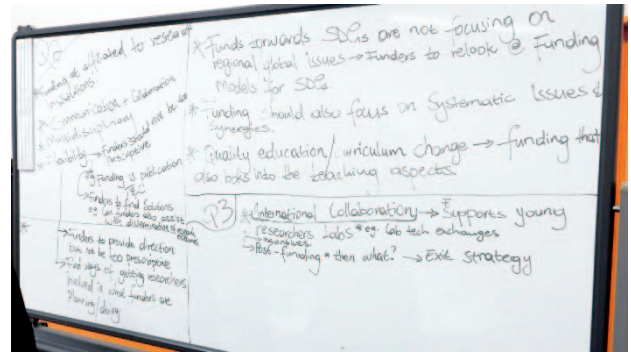 * Funding affiliated to research
institutions.
* Communication + Collaboration
* Multidisciplinary
* Flexibility → Funders should not be so
prescriptive
eg Funding is publication
→ Funders to find solutions
eg Can funders also assist
with dissemination of
→ Funders to provide direction
but not be too prescriptive
→ Find ways of getting researchers
involved in what funders are
planning/doing
* Funds forwards SDGs are not focusing on
regional global issues → Funders to relook @ Funding
models for SDGs.
* Funding should also focus on Systematic Issues &
synergies.
* Quality education/curriculum change → funding that
also looks into the teaching aspects.
P3
* International Collaboratory → Supports young
researchers Labs * eg. Lab tech exchanges
→ Post-funding * then what? → Exit strategy